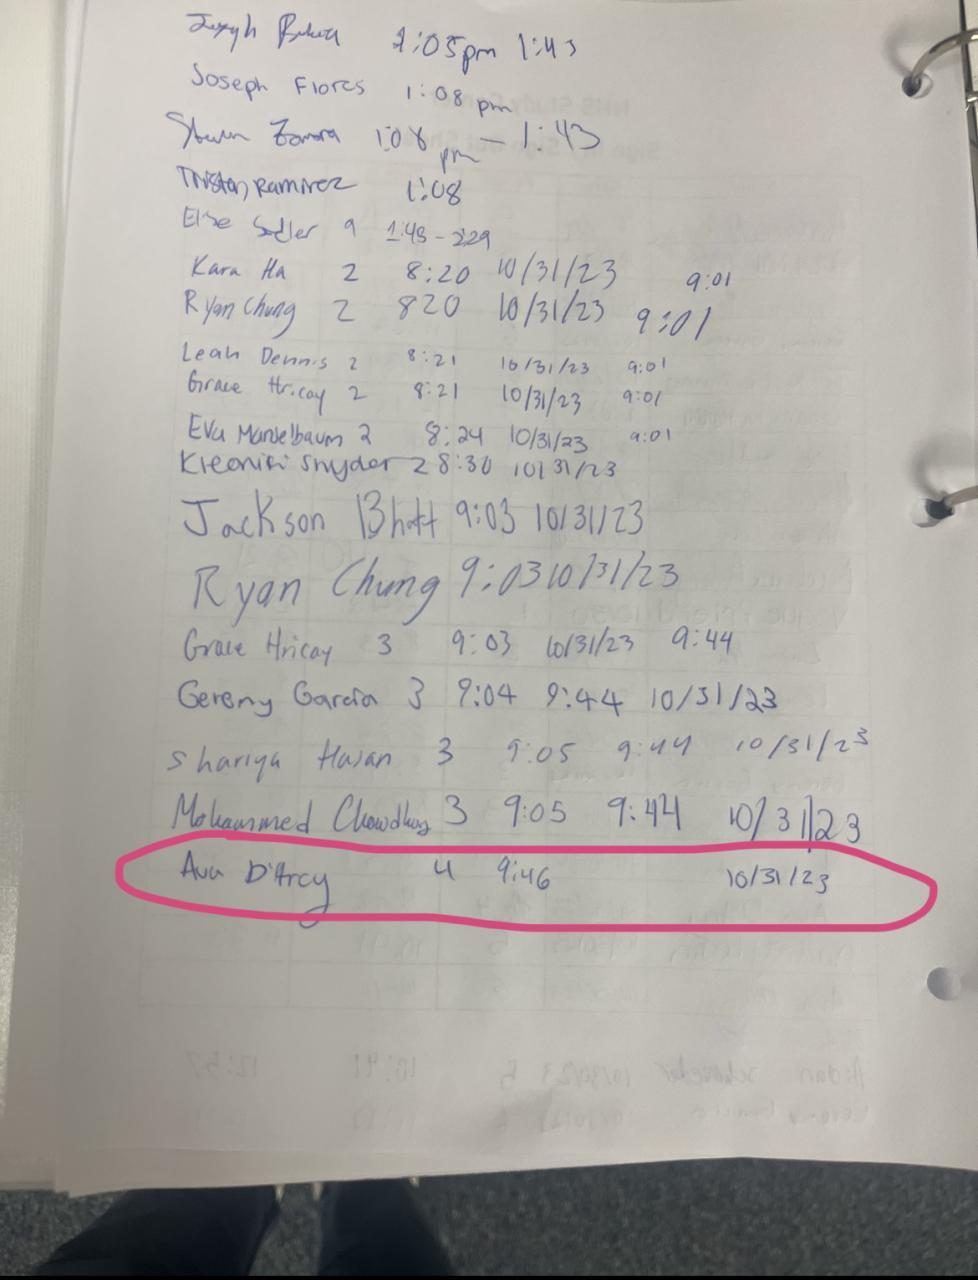 Joseph 1:05pm 1:43
Joseph Flores 1:08 pm
Zamora 1:08 pm - 1:43
Tristan Ramirez 1:08
Elise Sadler 9 1:45 - 2:29
Kara Ha 2 8:20 10/31/23 9:01
Ryan Chung 2 820 10/31/23 9:01
Leah Dennis 2 8:21 10/31/23 9:01
Grace Hricay 2 8:21 10/31/23 9:01
Eva Mandelbaum 2 8:24 10/31/23 9:01
Snyder 2 8:30 10/31/23
Jackson Bhatt 9:03 10/31/23
Ryan Chung 9:03 10/31/23
Grace Hricay 3 9:03 10/31/23 9:44
Geremy Garcia 3 9:04 9:44 10/31/23
Shariya Hasan 3 9:05 9:44 10/31/23
Mohammed Chowdhury 3 9:05 9:44 10/31/23
Ava D'Arcy 4 9:46 10/31/23